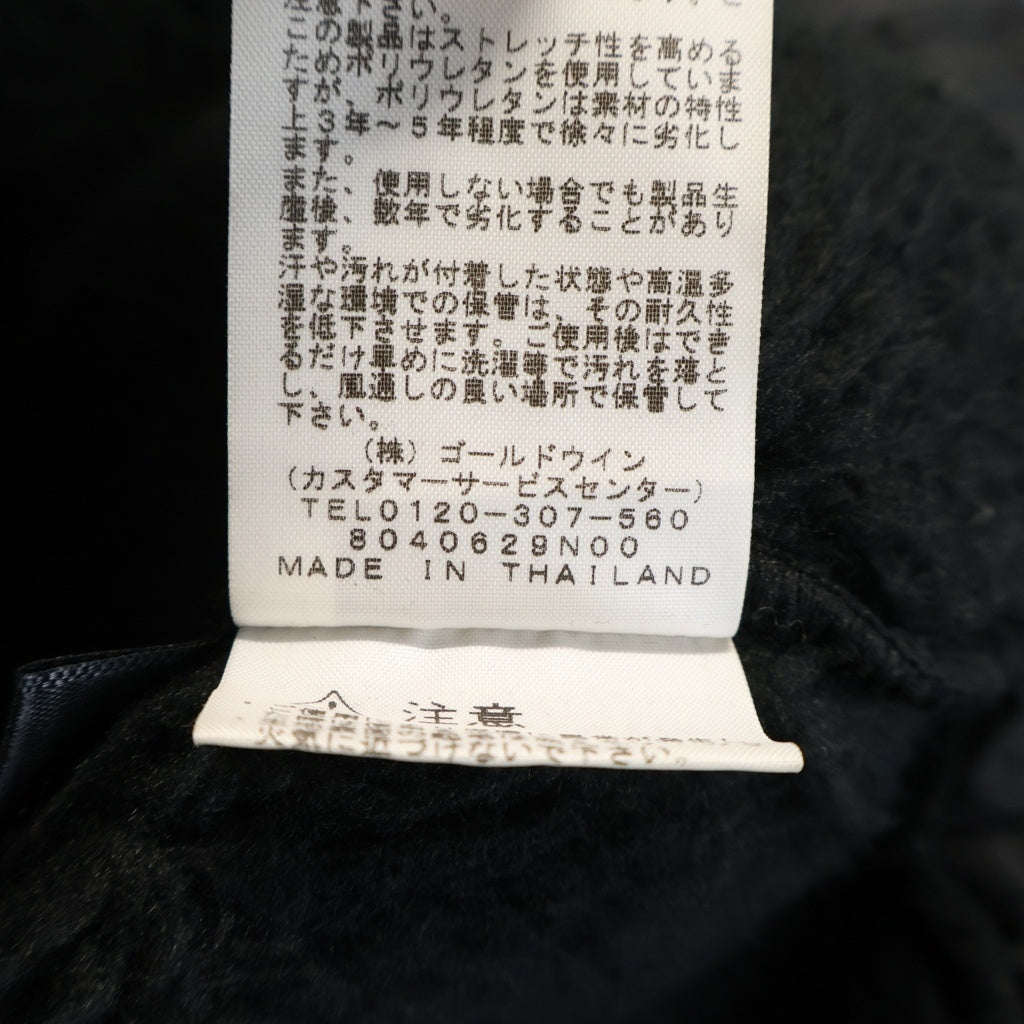 い。
この製品はストレッチ性を高める
ためポリウレタンを使用していま
すが、ポリウレタンは素材の特性
上3年～5年程度で徐々に劣化し
ます。
また、使用しない場合でも製品生
産後、数年で劣化することがあり
ます。
汗や汚れが付着した状態や高温多
湿な環境での保管は、その耐久性
を低下させます。ご使用後はでき
るだけ早めに洗濯等で汚れを落と
し、風通しの良い場所で保管して
下さい。
(株) ゴールドウイン
(カスタマーサービスセンター)
TEL0120-307-560
8040629N00
MADE IN THAILAND
注意
火気に近づけないで下さい。